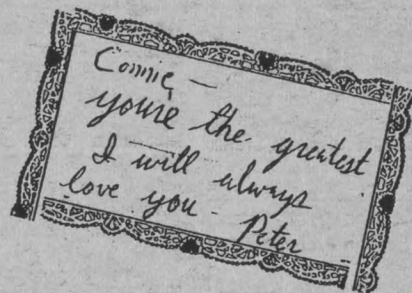 Connie —
youre the greatest
I will always
love you - Peter